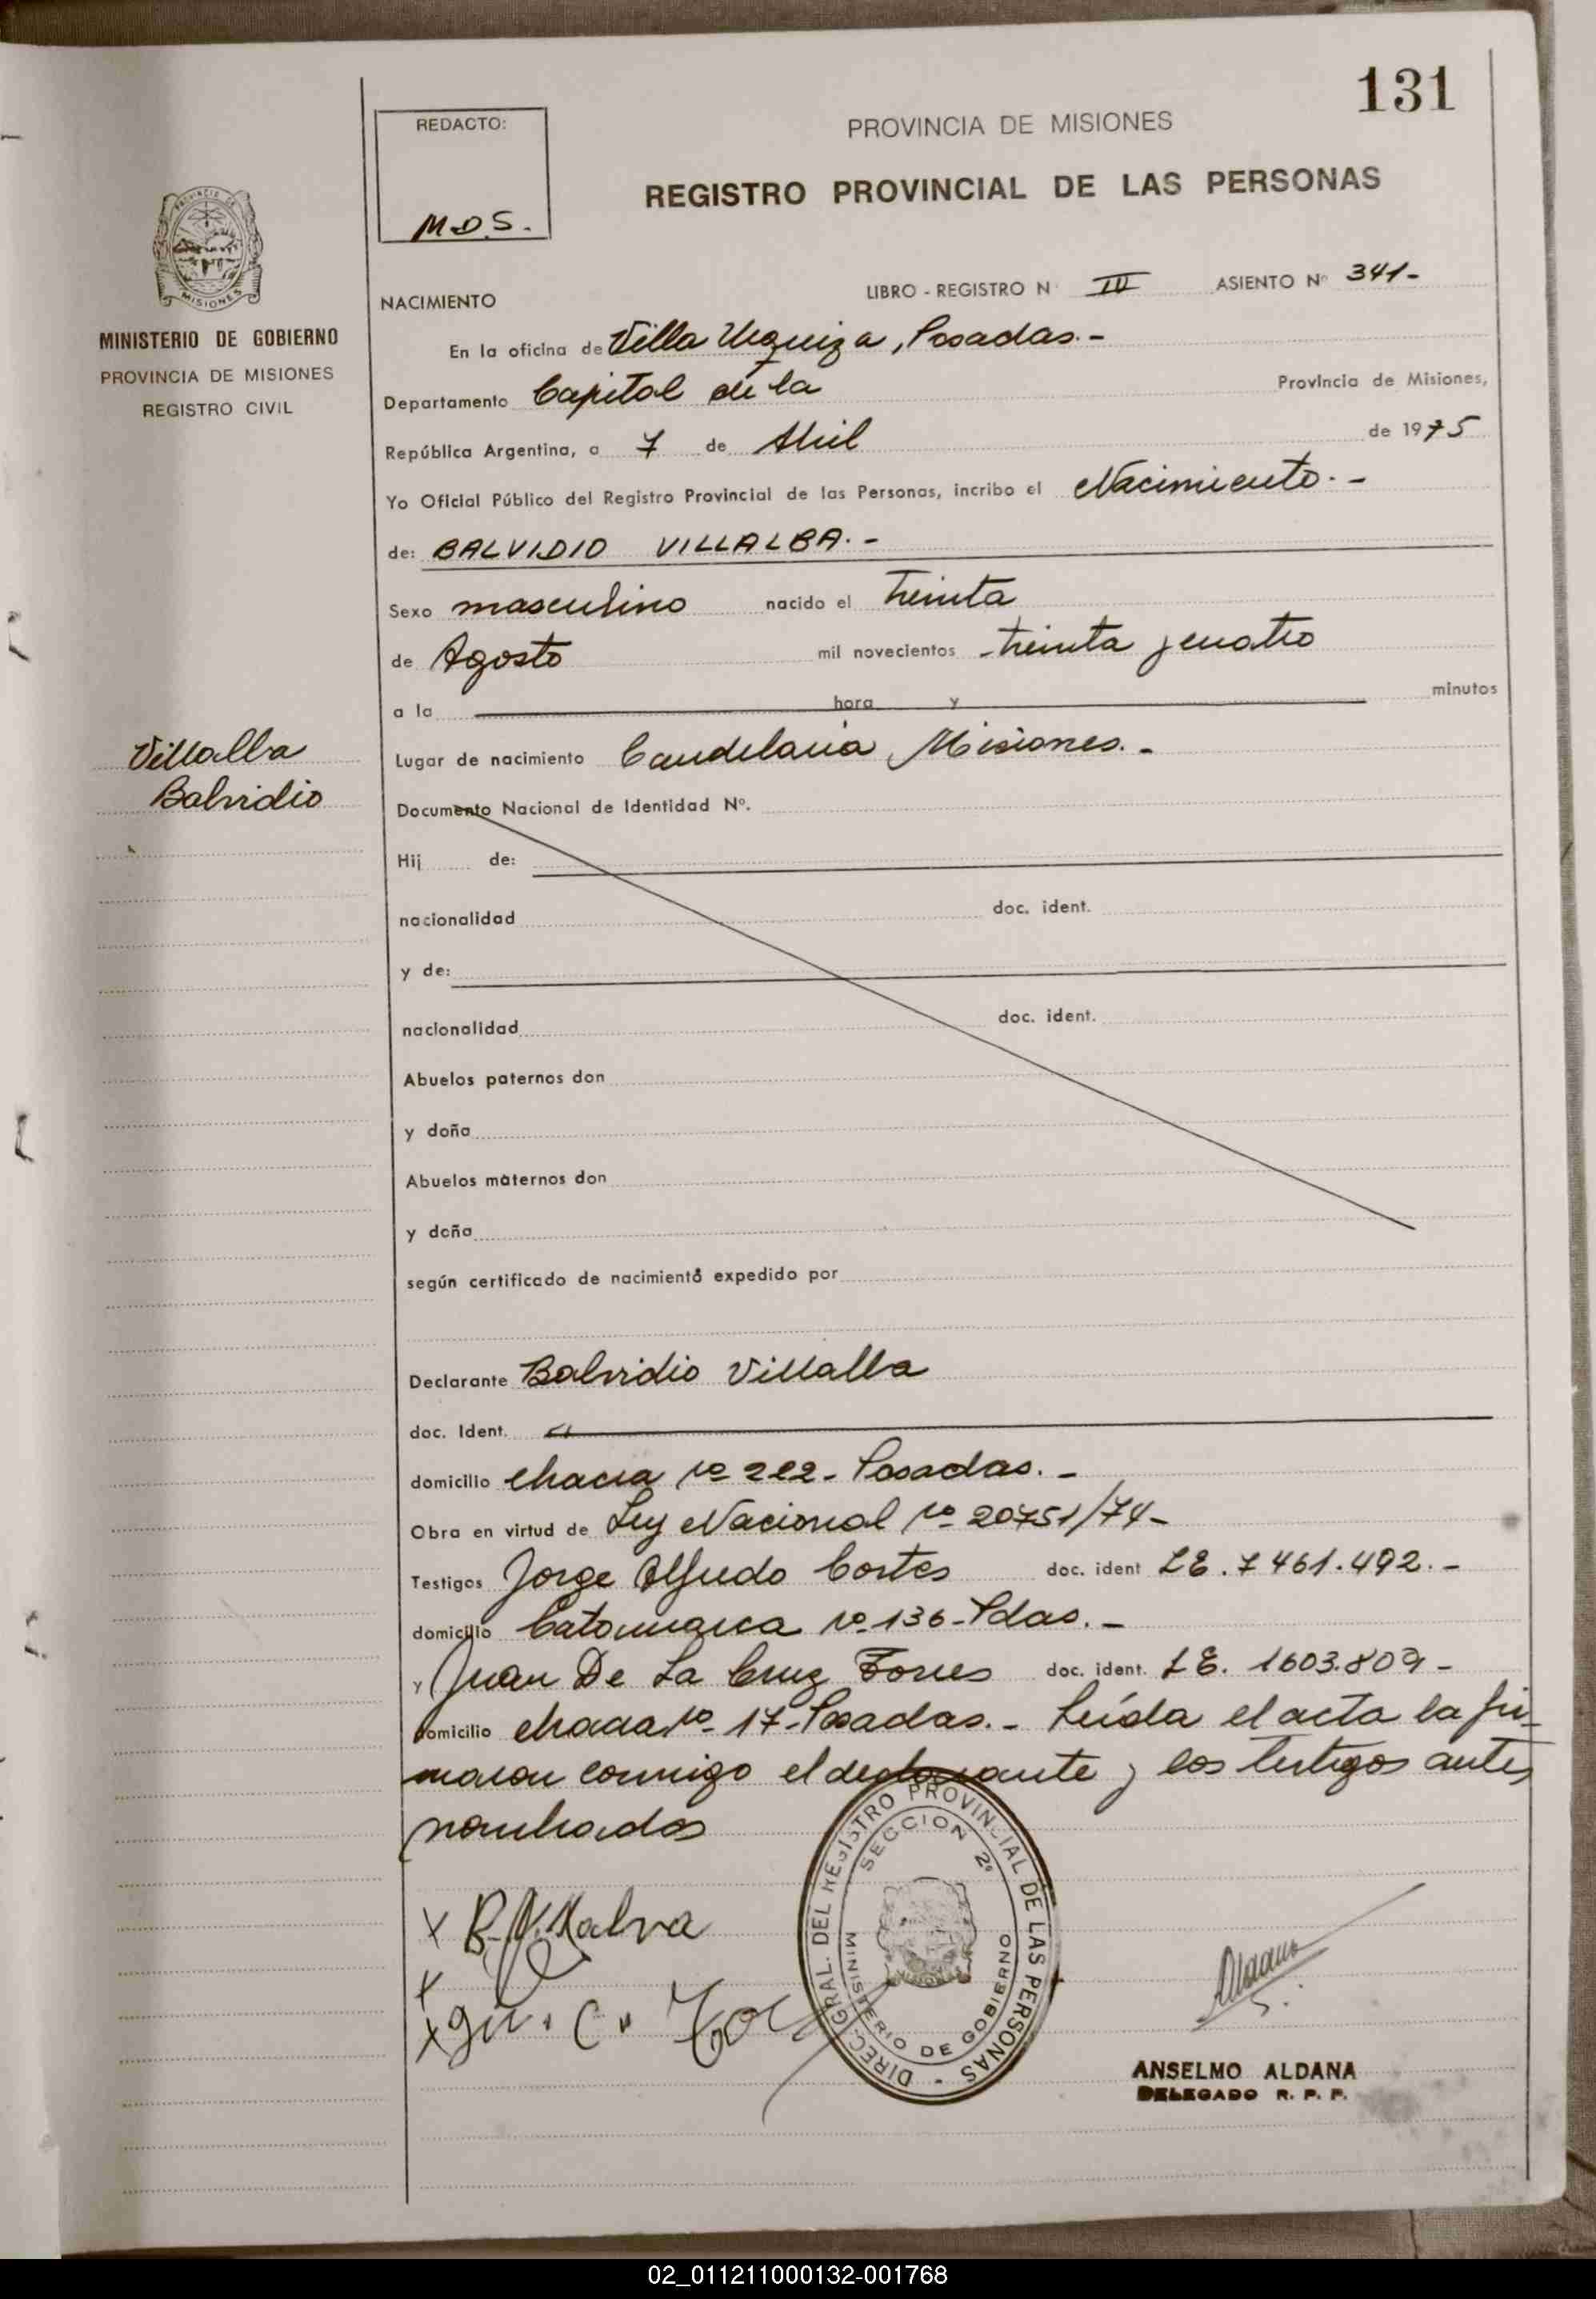 131
REDACTO:
M.D.S.
PROVINCIA DE MISIONES
REGISTRO PROVINCIAL DE LAS PERSONAS
MISIONES
MINISTERIO DE GOBIERNO
PROVINCIA DE MISIONES
REGISTRO CIVIL
NACIMIENTO
LIBRO - REGISTRO N° IV ASIENTO N° 341-
En la oficina de Villa Urquiza, Posadas.-
Departamento Capital de la Provincia de Misiones,
República Argentina, a 7 de Abril de 1975
Yo Oficial Público del Registro Provincial de las Personas, incribo el Nacimiento.-
de: BALVIDIO VILLALBA.-
Sexo masculino nacido el treinta
de Agosto mil novecientos treinta y cuatro
a la hora y minutos
Villalba
Balvidio
Lugar de nacimiento Candelaria, Misiones.-
Documento Nacional de Identidad N°.
Hij de:
nacionalidad doc. ident.
y de:
nacionalidad doc. ident.
Abuelos paternos don
y doña
Abuelos maternos don
y doña
según certificado de nacimiento expedido por
Declarante Balvidio Villalba
doc. Ident.
domicilio chacra nº 222- Posadas.-
Obra en virtud de Ley Nacional nº 20751/74-
Testigos Jorge Alfredo Cortes doc. ident LE. 7461.492.-
domicilio Catamarca nº 136-Pdas.-
y Juan De La Cruz Torres doc. ident. LE. 1603.809-
domicilio chacra nº 17-Posadas.- Leída el acta la fir-
maron conmigo el declarante y los testigos antes
nombrados
X B. Villalva
X
X
DIREC. GRAL. DEL REGISTRO PROVINCIAL DE LAS PERSONAS -
SECCION 2º
MINISTERIO DE GOBIERNO
MISIONES
ANSELMO ALDANA
DELEGADO R. P. P.
02_011211000132-001768